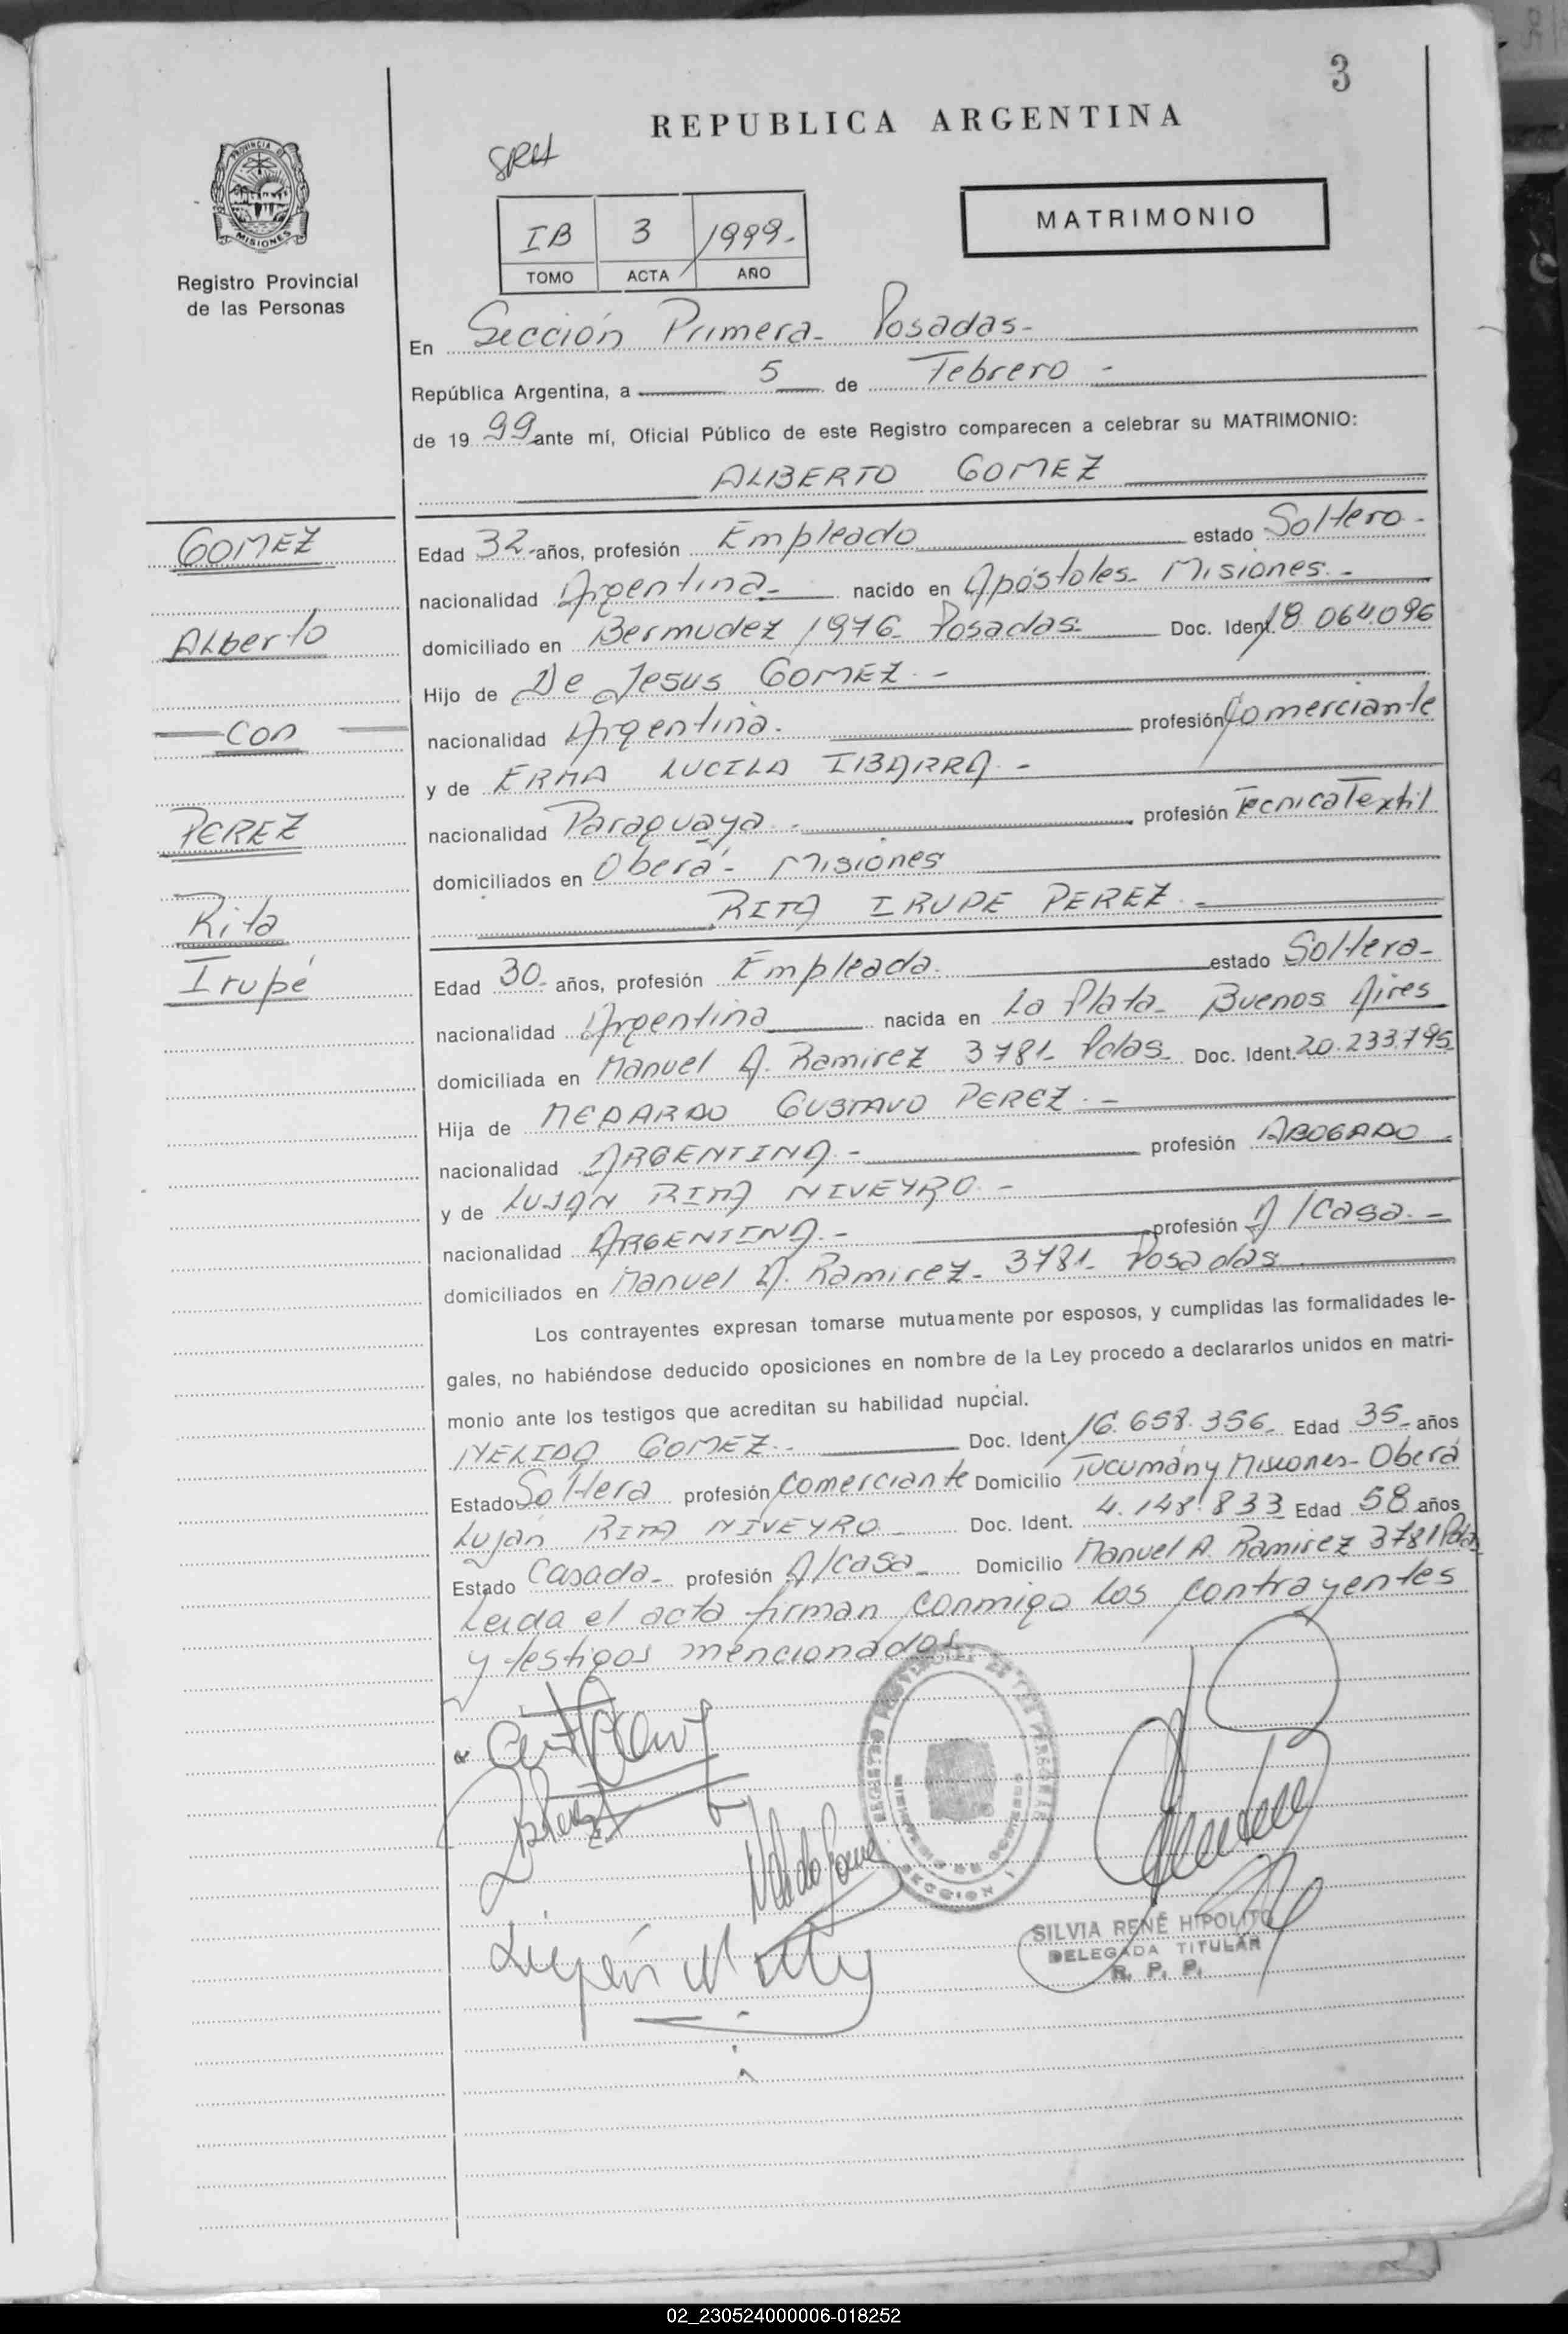 3
REPUBLICA ARGENTINA
SRH
PROVINCIA DE
MISIONES
Registro Provincial
de las Personas
IB 3 1999.-
TOMO ACTA AÑO
MATRIMONIO
En Sección Primera- Posadas-
República Argentina, a 5 de Febrero -
de 19 99 ante mí, Oficial Público de este Registro comparecen a celebrar su MATRIMONIO:
ALBERTO GOMEZ
GOMEZ
Alberto
con
PEREZ
Rita
Irupé
Edad 32- años, profesión Empleado estado Soltero-
nacionalidad Argentina- nacido en Apóstoles- Misiones.-
domiciliado en Bermudez 1976- Posadas- Doc. Ident. 18.064.096
Hijo de De Jesus GOMEZ.-
nacionalidad Argentina. profesión Comerciante
y de ERMA LUCILA IBARRA.-
nacionalidad Paraguaya.- profesión Tecnica Textil
domiciliados en Oberá- Misiones
RITA IRUPE PEREZ.-
Edad 30- años, profesión Empleada. estado Soltera-
nacionalidad Argentina nacida en La Plata- Buenos Aires
domiciliada en Manuel A. Ramirez 3781- Pdas- Doc. Ident. 20.233.795
Hija de MEDARDO GUSTAVO PEREZ.-
nacionalidad ARGENTINA.- profesión ABOGADO-
y de LUJÁN RITA NIVEYRO.-
nacionalidad ARGENTINA.- profesión A/Casa.-
domiciliados en Manuel A. Ramirez- 3781- Posadas
Los contrayentes expresan tomarse mutuamente por esposos, y cumplidas las formalidades le-
gales, no habiéndose deducido oposiciones en nombre de la Ley procedo a declararlos unidos en matri-
monio ante los testigos que acreditan su habilidad nupcial.
NELIDA GOMEZ.- Doc. Ident. 16.658.356- Edad 35- años
Estado Soltera profesión Comerciante Domicilio Tucumán y Misiones- Oberá
Luján RITA NIVEYRO- Doc. Ident. 4.148.833 Edad 58 años
Estado Casada- profesión A/casa- Domicilio Manuel A. Ramirez 3781 Pdas
Leida el acta firman conmigo los contrayentes
y testigos mencionados
REGISTRO PROVINCIAL DE LAS PERSONAS
MINISTERIO DE GOBIERNO
SECCION I
SILVIA RENÉ HIPOLITO
DELEGADA TITULAR
R. P. P.
02_230524000006-018252